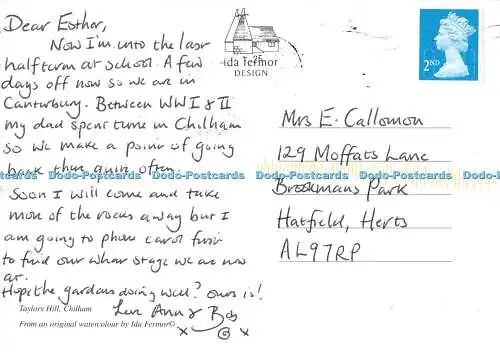 Dear Esther,
Now I'm into the last
half term at school. A few
days off now so we are in
Canterbury. Between WW I & II
my dad spent time in Chilham
so we make a point of going
back there quite often.
Soon I will come and take
more of the rocks away but I
am going to phone Carol first
to find out what stage we are now
at.
Hope the gardens doing well? Ours is!
Love Ann & Bob
x x
Taylors Hill, Chilham
From an original watercolour by Ida Fermor©
ida fermor
DESIGN
2ND
Mrs E. Callomon
129 Moffats Lane
Brookmans Park
Hatfield, Herts
AL9 7RP
Dodo-Postcards Dodo-Postcards Dodo-Postcards Dodo-Postcards Dodo-Postcards Dodo-Postcards